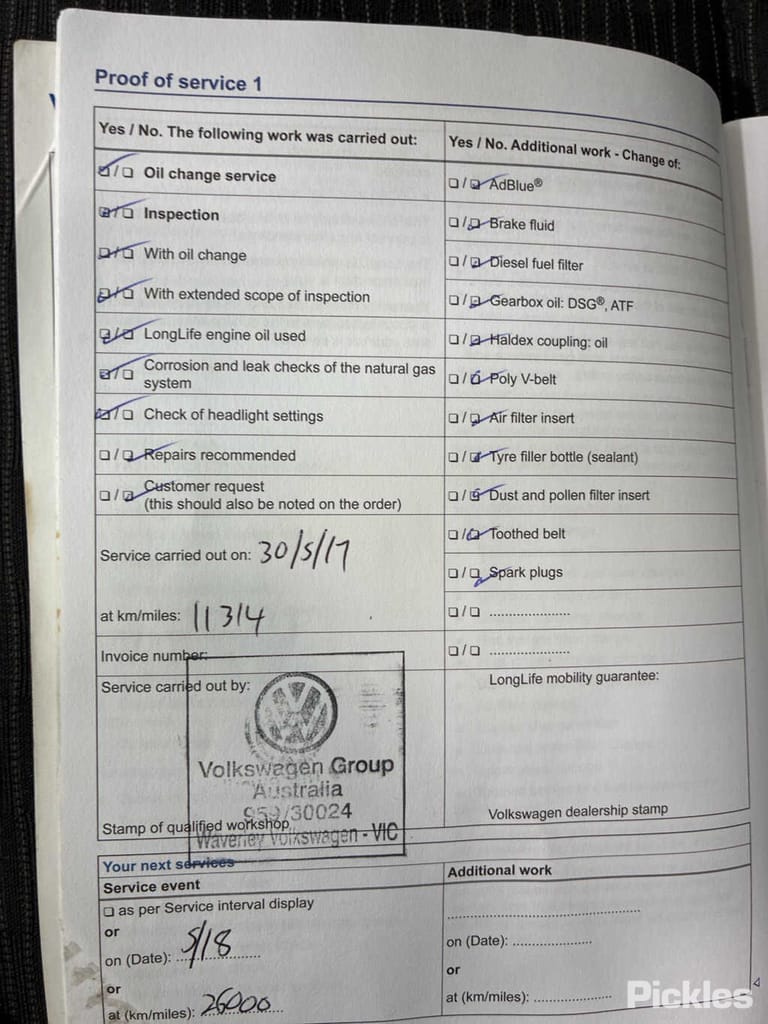 Proof of service 1
Yes / No. The following work was carried out:
☑/☐ Oil change service
☑/☐ Inspection
☑/☐ With oil change
☑/☐ With extended scope of inspection
☑/☐ LongLife engine oil used
☑/☐ Corrosion and leak checks of the natural gas
system
☑/☐ Check of headlight settings
☐/☑ Repairs recommended
☐/☑ Customer request
(this should also be noted on the order)
Service carried out on: 30/5/17
at km/miles: 11314
Invoice number:
Service carried out by:
Volkswagen Group
Australia
959/30024
Waverley Volkswagen - VIC
Stamp of qualified workshop
Yes / No. Additional work - Change of:
☐/☑ AdBlue®
☐/☑ Brake fluid
☐/☑ Diesel fuel filter
☐/☑ Gearbox oil: DSG®, ATF
☐/☑ Haldex coupling: oil
☐/☑ Poly V-belt
☐/☑ Air filter insert
☐/☑ Tyre filler bottle (sealant)
☐/☑ Dust and pollen filter insert
☐/☑ Toothed belt
☐/☑ Spark plugs
☐/☐ ....................
☐/☐ ....................
LongLife mobility guarantee:
Volkswagen dealership stamp
Your next services
Service event
☐ as per Service interval display
or
on (Date): 5/18
or
at (km/miles): 26000
Additional work
................................................
on (Date): ....................
or
at (km/miles): ....................
Pickles